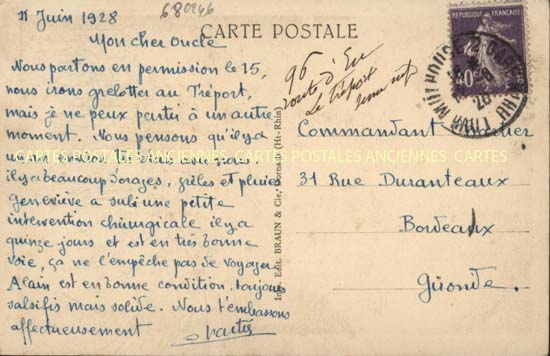 11 Juin 1928
680246
CARTE POSTALE
Mon cher Oncle
Nous partons en permission le 15,
nous irons grelotter au Tréport,
mais je ne peux partir à un autre
moment. Nous pensons qu'il y a
il y a beaucoup d'orages, grêles et pluies
Geneviève a subi une petite
intervention chirurgicale il y a
quinze jours et est en très bonne
voie, ça ne l'empêche pas de voyager
Alain est en bonne condition toujours
salsifis mais solide. Nous t'embrassons
affectueusement
96
route d'Eu
Le Tréport
Seine inf
Commandant
31 Rue Duranteaux
Bordeaux
Gironde.
Imp. Edit. BRAUN & Cie, Dornach (Ht-Rhin)
REPUBLIQUE FRANÇAISE
40c
MULHOUSE
28
CARTES POSTALES ANCIENNES CARTES POSTALES ANCIENNES CARTES